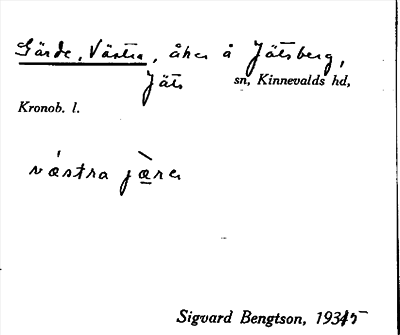 Gärde, Västra, åker å Jätsberg,
Jäts sn, Kinnevalds hd,
Kronob. l.
västra jære
Sigvard Bengtson, 1935